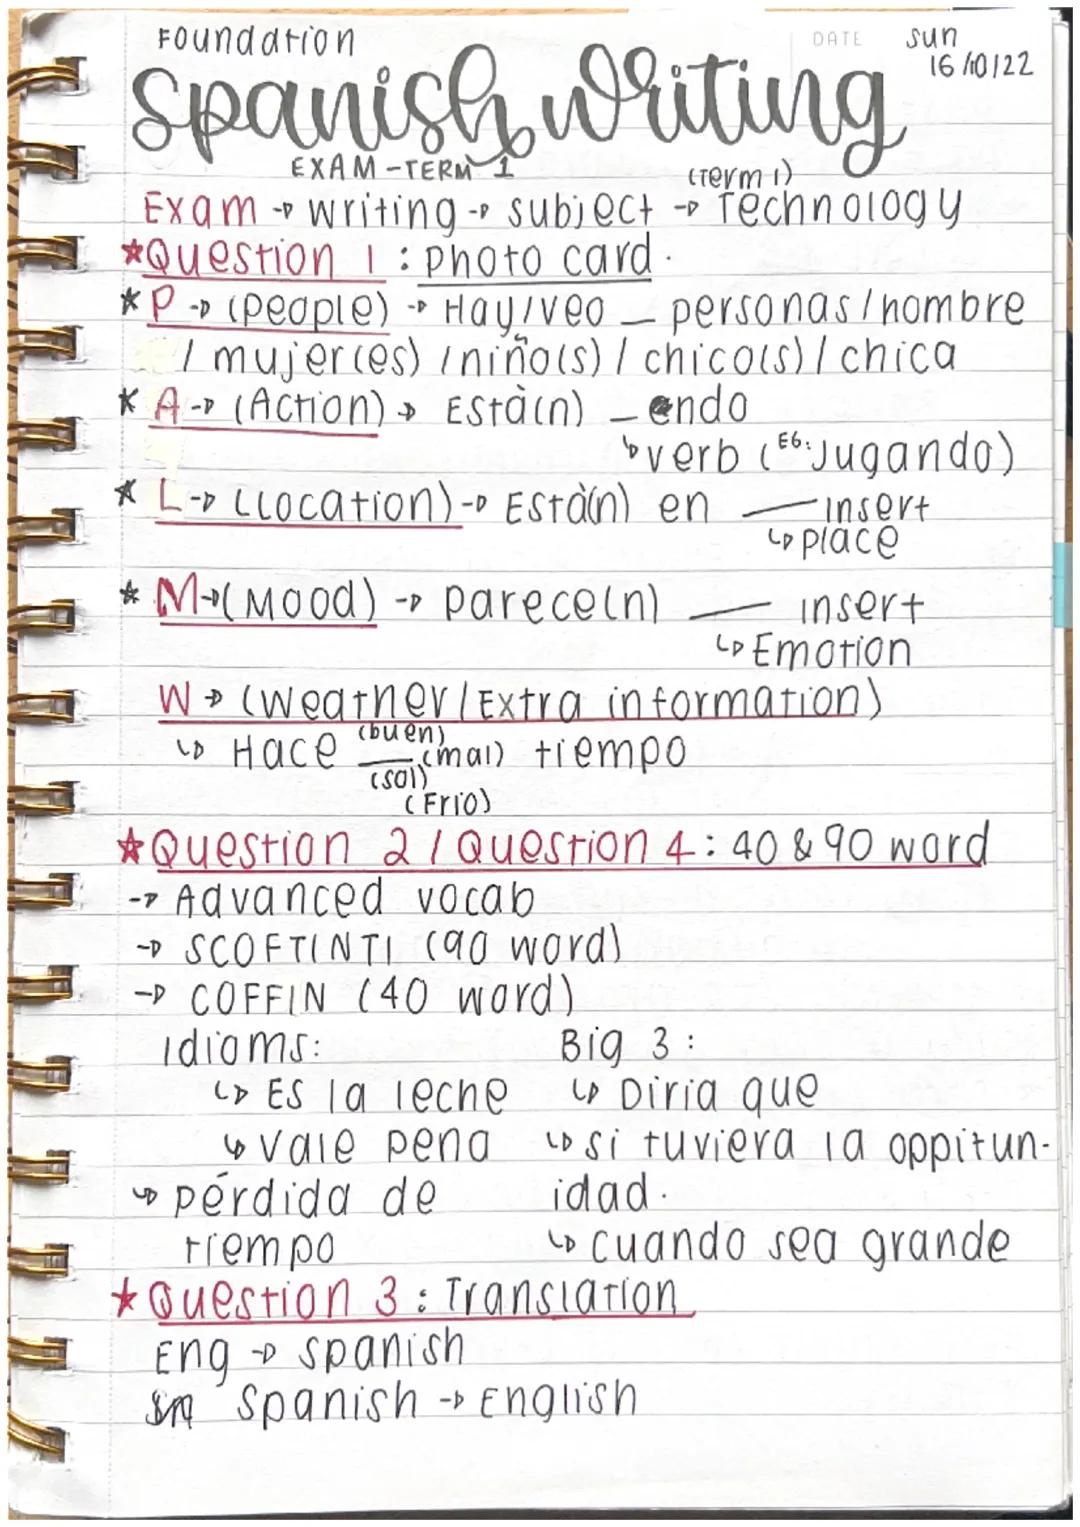 Foundation
DATE
sun
16/10/22
Spanish writing
EXAM-TERM 1
(Term 1)
Exam → writing → subject → Technology
★Question 1 : photo card.
* P → (people) → Hay/veo _ personas/hombre
/ mujer(es) /niño(s) / chico(s) / chica
* A → (Action) → Està(n) _ endo
↳ verb (EG: Jugando)
* L → (Location) → Està(n) en ___ insert
↳ place
* M → (Mood) → parece(n) ___ insert
↳ Emotion
W → (Weather/Extra information)
↳ Hace (buen) ___ (mal) tiempo
(sol)
(Frio)
★Question 2 / Question 4 : 40 & 90 word
→ Advanced vocab
→ SCOFTINTI (90 word)
→ COFFIN (40 word)
Idioms: Big 3 :
↳ ES la leche ↳ Diria que
↳ vale pena ↳ si tuviera la oppitun-
↳ pérdida de idad.
tiempo ↳ cuando sea grande
★Question 3 : Translation
Eng → spanish
Spanish → English